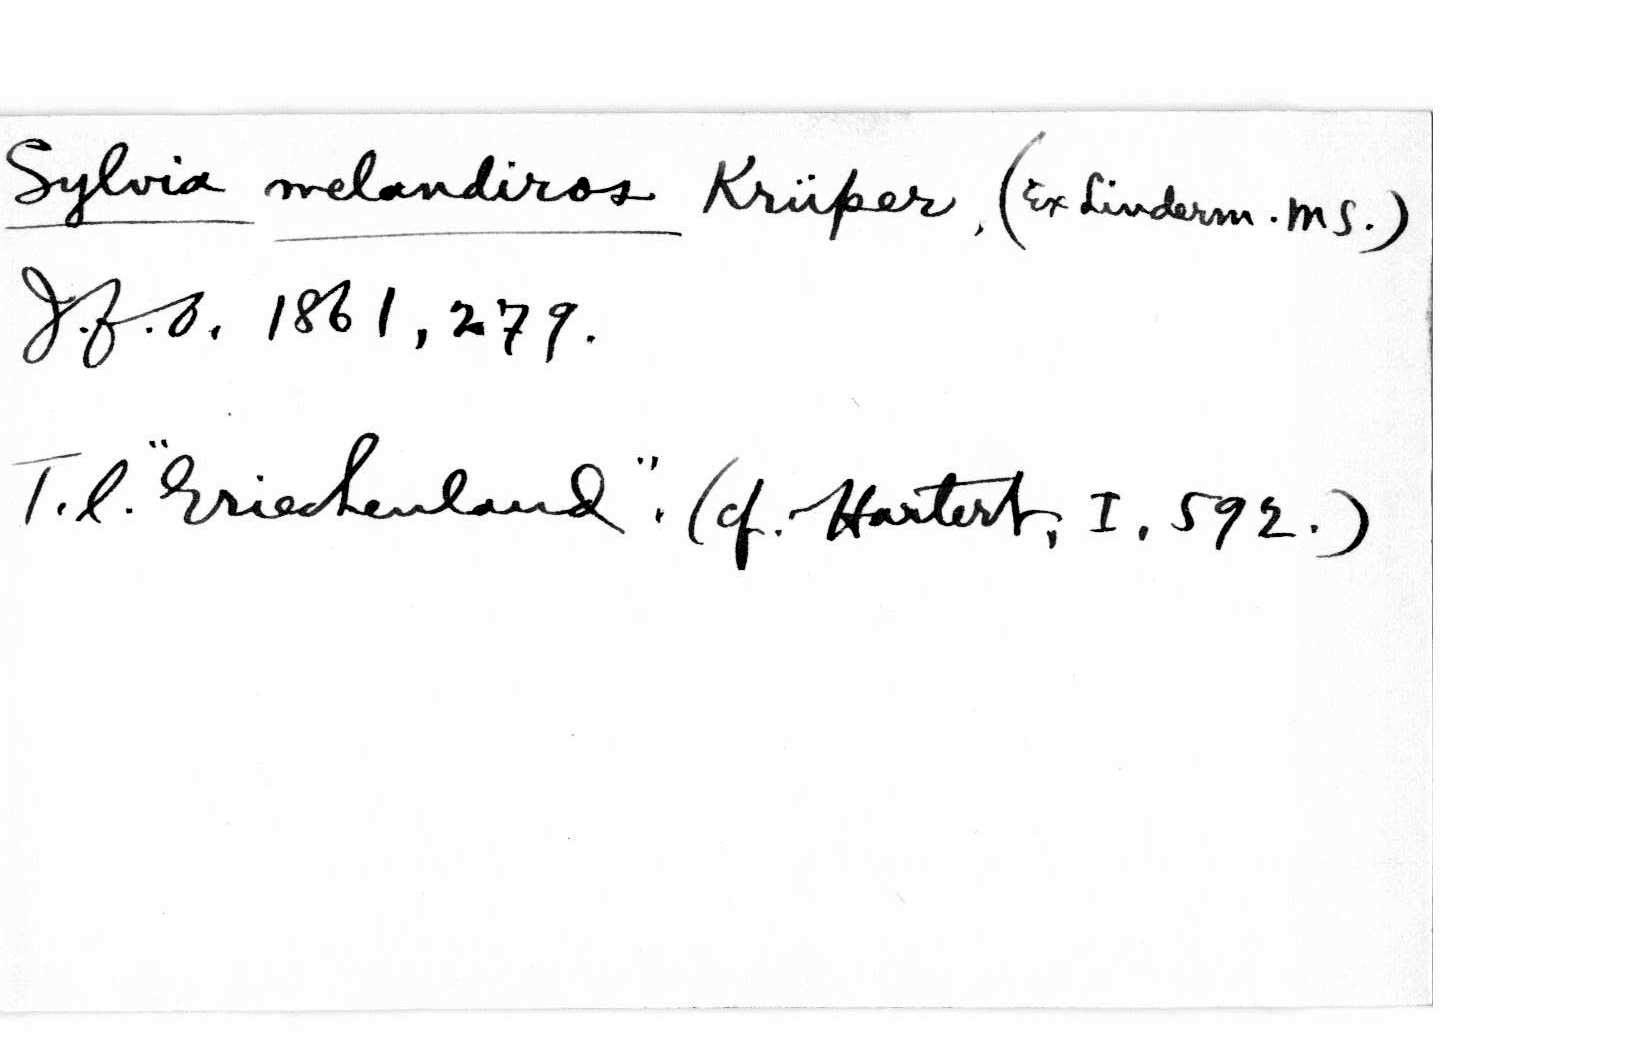 Sylvia melandiros Krüper, (Ex Linderm. MS.)
J.f.O. 1861, 279.
T.l. "Griechenland". (cf. Hartert, I, 592.)